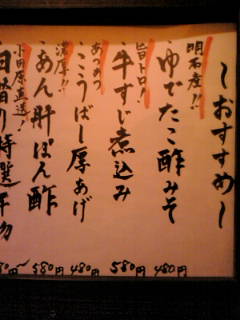 〜おすすめ〜
明石産!!
ゆでたこ酢みそ
480円
旨トロ!
牛すじ煮込み
580円
あつあつ
こうばし厚あげ
480円
濃厚!!
あん肝ぽん酢
580円
小田原直送!
日替り特選干物